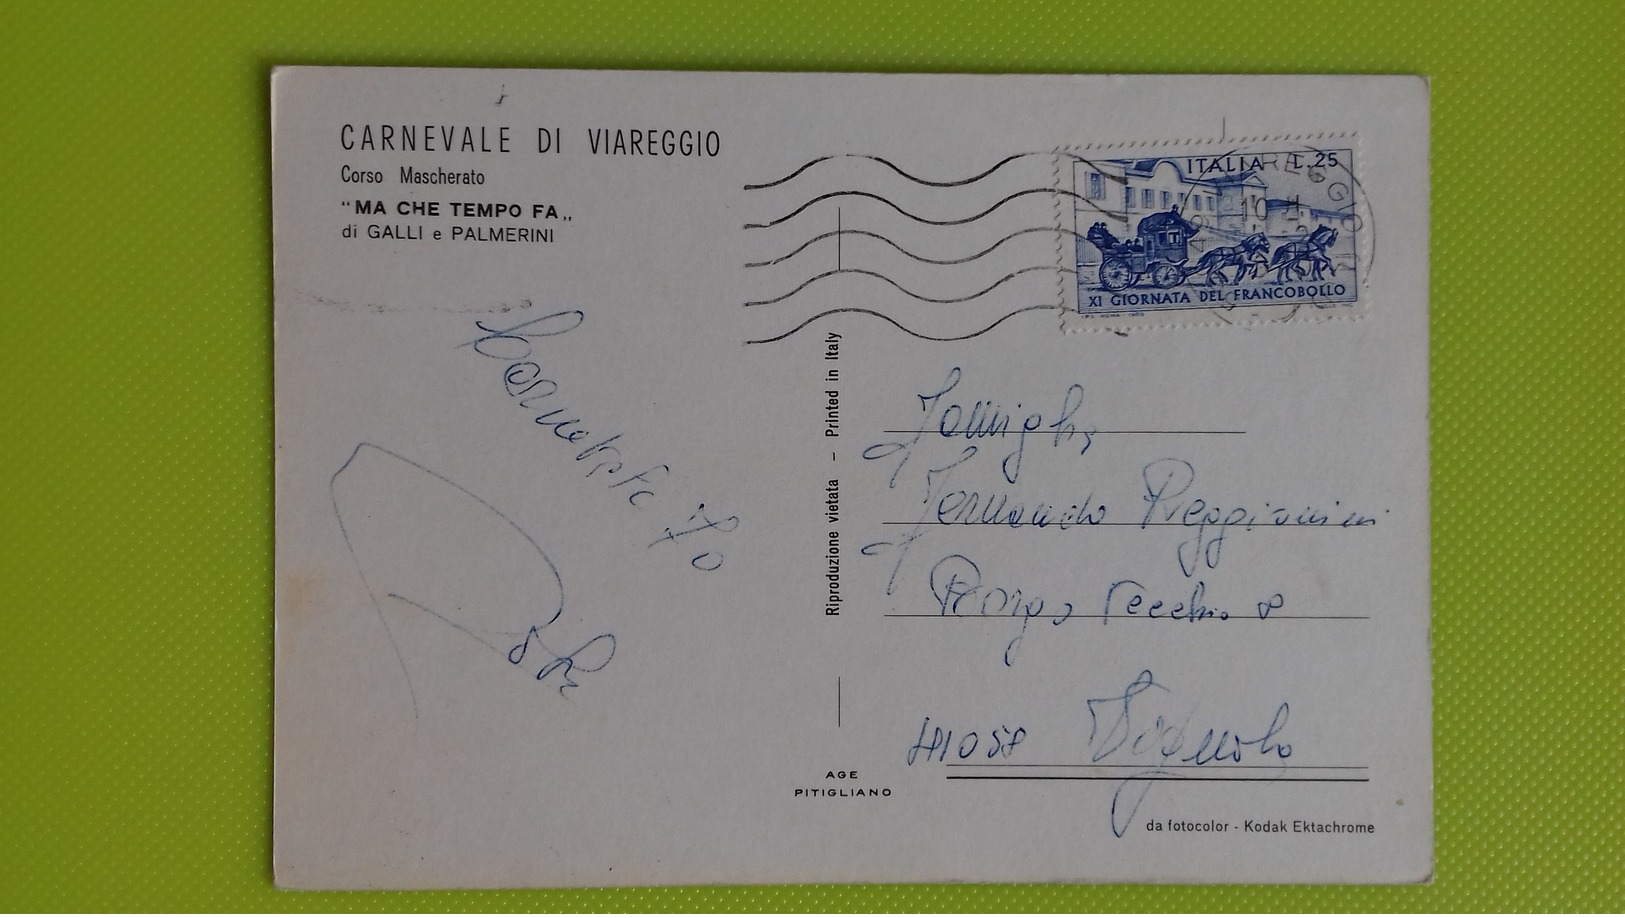 CARNEVALE DI VIAREGGIO
Corso Mascherato
"MA CHE TEMPO FA„
di GALLI e PALMERINI
ITALIA L.25
XI GIORNATA DEL FRANCOBOLLO
VIAREGGIO
Riproduzione vietata - Printed in Italy
70
Famiglia
Fernando Reggianini
Borgo Vecchio 8
41058 Vignola
AGE
PITIGLIANO
da fotocolor - Kodak Ektachrome